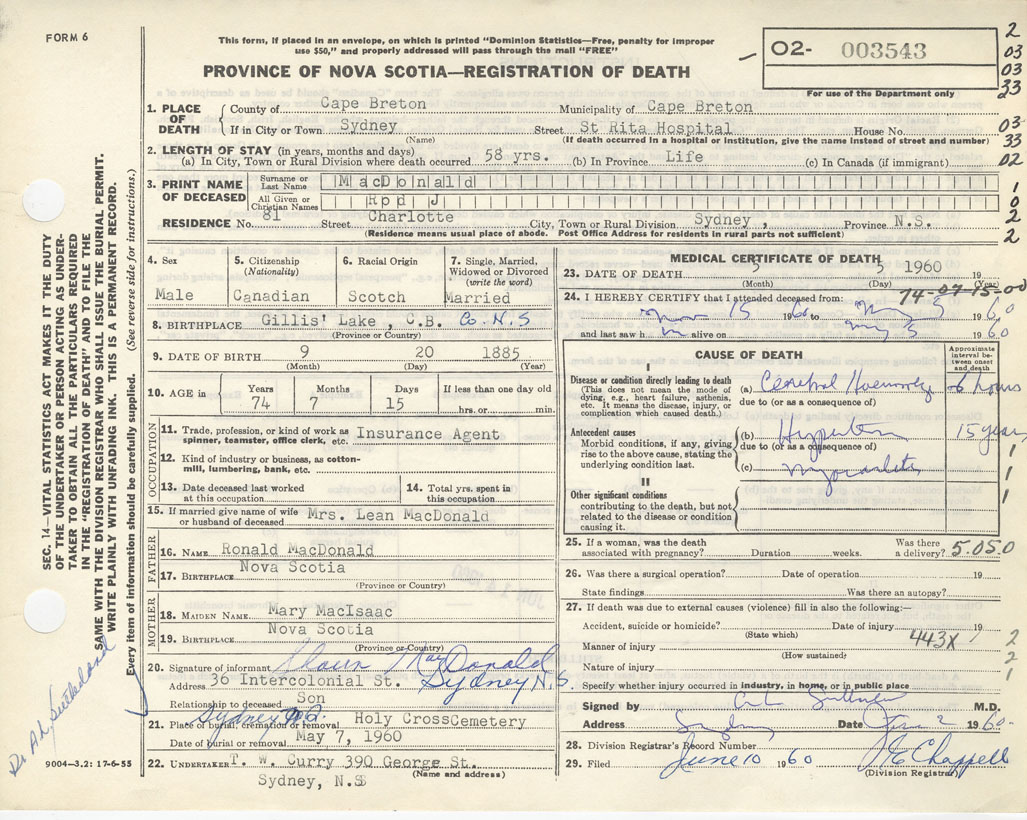 FORM 6
This form, if placed in an envelope, on which is printed "Dominion Statistics—Free, penalty for improper
use $50," and properly addressed will pass through the mail "FREE"
PROVINCE OF NOVA SCOTIA—REGISTRATION OF DEATH
02- 003543
For use of the Department only
2
03
03
33
03
33
02
1
0
2
2
1. PLACE OF DEATH
County of Cape Breton Municipality of Cape Breton
If in City or Town Sydney Street St Rita Hospital House No.
(Name) (If death occurred in a hospital or institution, give the name instead of street and number)
2. LENGTH OF STAY (in years, months and days)
(a) In City, Town or Rural Division where death occurred 58 yrs. (b) In Province Life (c) In Canada (if immigrant)
3. PRINT NAME OF DECEASED
Surname or Last Name MacDonald
All Given or Christian Names Rpd J
RESIDENCE No. 81 Street Charlotte City, Town or Rural Division Sydney, Province N.S.
(Residence means usual place of abode. Post Office Address for residents in rural parts not sufficient)
4. Sex Male
5. Citizenship (Nationality) Canadian
6. Racial Origin Scotch
7. Single, Married, Widowed or Divorced (write the word) Married
8. BIRTHPLACE Gillis' Lake , C.B. Co. N.S
(Province or Country)
9. DATE OF BIRTH 9 20 1885
(Month) (Day) (Year)
10. AGE in Years 74 Months 7 Days 15 If less than one day old hrs. or min.
OCCUPATION
11. Trade, profession, or kind of work as spinner, teamster, office clerk, etc. Insurance Agent
12. Kind of industry or business, as cotton-mill, lumbering, bank, etc.
13. Date deceased last worked at this occupation
14. Total yrs. spent in this occupation
15. If married give name of wife or husband of deceased Mrs. Lean MacDonald
FATHER
16. NAME Ronald MacDonald
17. BIRTHPLACE Nova Scotia
(Province or Country)
MOTHER
18. MAIDEN NAME Mary MacIsaac
19. BIRTHPLACE Nova Scotia
(Province or Country)
20. Signature of informant MacDonald
Address 36 Intercolonial St. Sydney N.S.
Relationship to deceased Son
Sydney
21. Place of burial, cremation or removal Holy CrossCemetery
Date of burial or removal May 7, 1960
22. UNDERTAKER T. W. Curry 390 George St.
(Name and address)
Sydney, N.S
MEDICAL CERTIFICATE OF DEATH
23. DATE OF DEATH 5 5 1960 19
(Month) (Day) (Year)
74-07-15-00
24. I HEREBY CERTIFY that I attended deceased from:
15 1960 to May 5 1960
and last saw h m alive on May 5 1960
CAUSE OF DEATH
Approximate interval between onset and death
I
Disease or condition directly leading to death
(This does not mean the mode of dying, e.g., heart failure, asthenia, etc. It means the disease, injury, or complication which caused death.)
(a) Cerebral 6 hours
due to (or as a consequence of)
Antecedent causes
Morbid conditions, if any, giving rise to the above cause, stating the underlying condition last.
(b) 15 years
due to (or as a consequence of)
(c) Myocarditis
1
1
1
II
Other significant conditions
contributing to the death, but not related to the disease or condition causing it.
25. If a woman, was the death associated with pregnancy? Duration weeks. Was there a delivery? 5.05.0
26. Was there a surgical operation? Date of operation 19
State findings Was there an autopsy?
27. If death was due to external causes (violence) fill in also the following:—
Accident, suicide or homicide? Date of injury 19
(State which) 443X
Manner of injury
(How sustained)
Nature of injury
2
2
1
Specify whether injury occurred in industry, in home, or in public place
Signed by M.D.
Address Sydney Date 2 1960
28. Division Registrar's Record Number
29. Filed June 10 1960 J E Chappell
(Division Registrar)
SEC. 14—VITAL STATISTICS ACT MAKES IT THE DUTY
OF THE UNDERTAKER OR PERSON ACTING AS UNDER-
TAKER TO OBTAIN ALL THE PARTICULARS REQUIRED
IN THE "REGISTRATION OF DEATH" AND TO FILE THE
SAME WITH THE DIVISION REGISTRAR WHO SHALL ISSUE THE BURIAL PERMIT.
WRITE PLAINLY WITH UNFADING INK. THIS IS A PERMANENT RECORD.
Every item of information should be carefully supplied. (See reverse side for instructions.)
Dr A.L. Sutherland
9004—3.2: 17-6-55